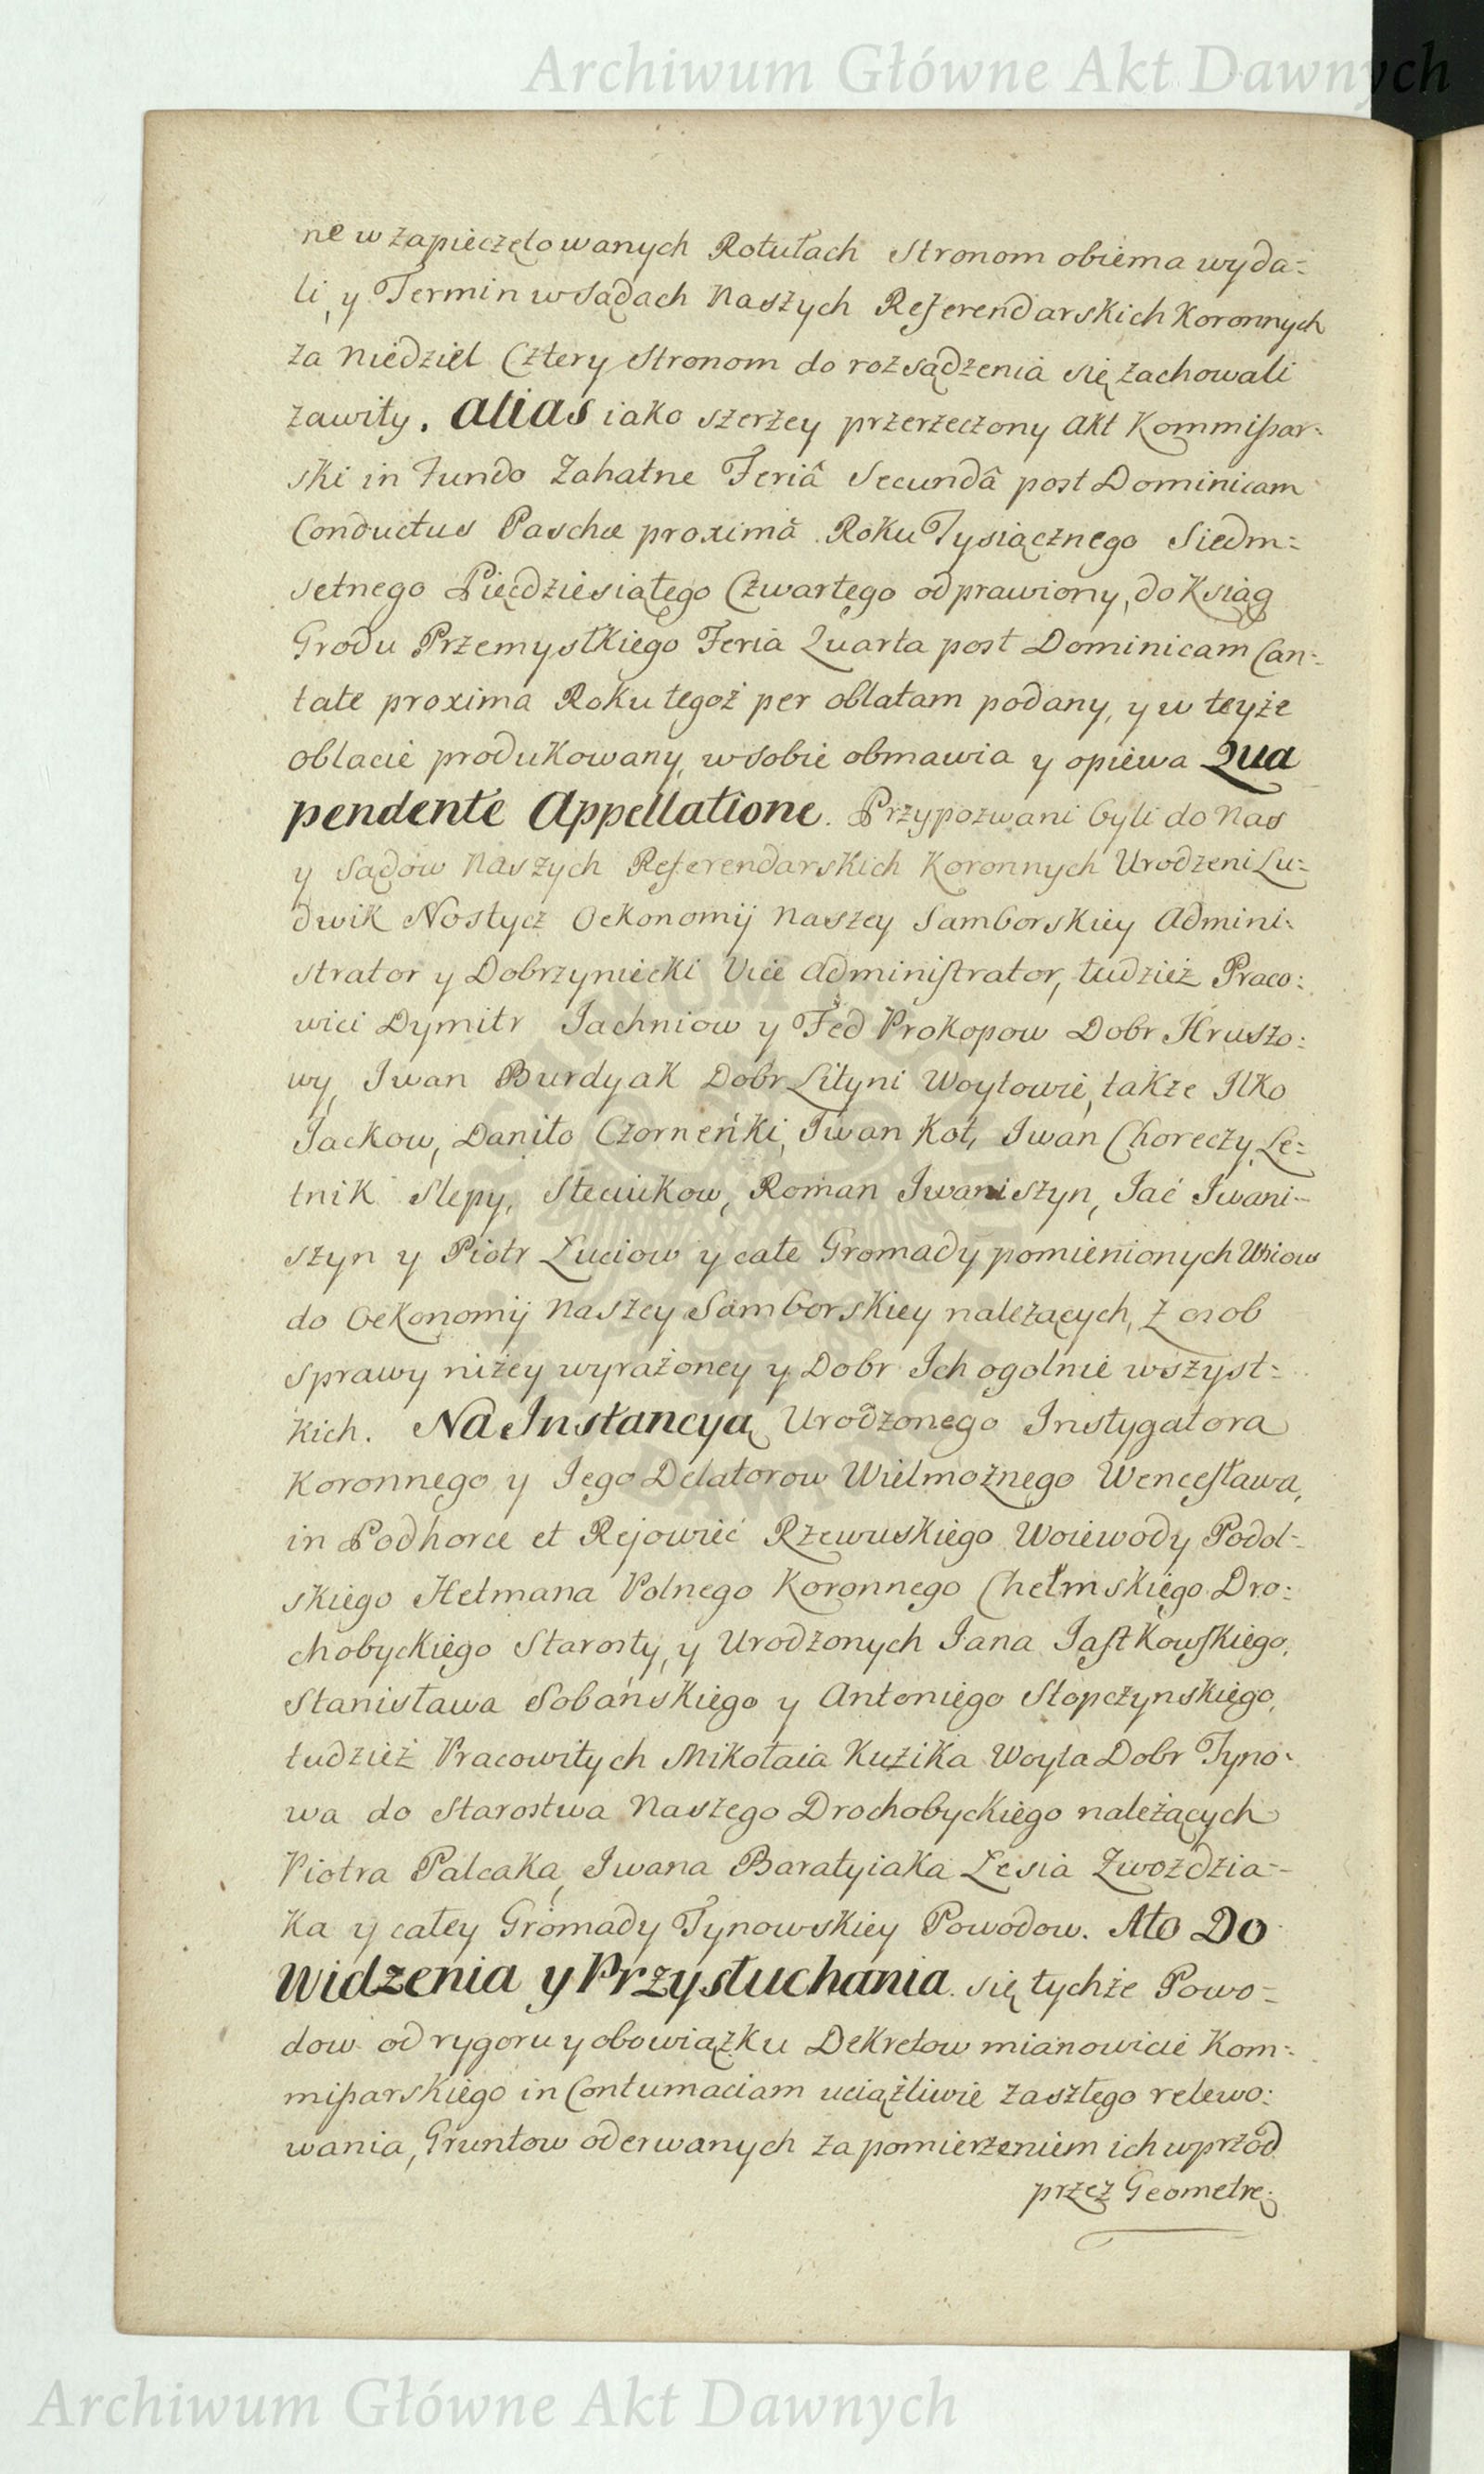 Archiwum Główne Akt Dawnych
ne w zapieczętowanych Rotułach Stronom obiema wyda=
li, y Termin w Sądach Naszych Referendarskich Koronnych
za Niedziel Cztery Stronom do rozsądzenia się zachowali
zawity. alias iako szerzey przerzeczony Akt Kommissar=
ski in Fundo Zahatne Feriâ Secundâ post Dominicam
Conductus Paschæ proximâ Roku Tysiącznego Siedm=
setnego Pięcdziesiątego Czwartego odprawiony, do Ksiąg
Grodu Przemyslkiego Feria Quarta post Dominicam Can=
tate proxima Roku tegoż per oblatam podany, y w teyże
oblacie produkowany, w sobie obmawia y opiewa Qua
pendente Appellatione. Przypozwani byli do Nas
y Sądow Naszych Referendarskich Koronnych Urodzeni Lu=
dwik Nostycz Oekonomij Naszey Samborskiey Admini=
strator y Dobrzyniecki Vice Administrator, tudzież Praco=
wici Dymitr Jachniow y Fed Prokopow Dobr Hruszo=
wy, Iwan Burdyak Dobr Lityni Woytowie, także Ilko
Jackow, Daniło Czorneńki, Iwan Kot, Iwan Choreczy, Le=
tnik Slepy, Steciukow, Roman Iwaniszyn, Jać Iwani=
szyn y Piotr Luciow y całe Gromady pomienionych Wsiow
do Oekonomij Naszey Samborskiey należących, z osob
sprawy niżey wyrażoney y Dobr Ich ogolnie wszyst=
kich. Na Instancyą Urodzonego Instygatora
Koronnego y Jego Delatorow Wielmożnego Wencesława,
in Podhorce et Rejowiec Rzewuskiego Woiewody Podol=
skiego Hetmana Polnego Koronnego Chełmskiego Dro=
chobyckiego Starosty, y Urodzonych Jana Jastkowskiego,
Stanisława Sobańskiego y Antoniego Słopczynskiego,
tudzież Pracowitych Mikołaia Kuzika Woyta Dobr Tyno=
wa do Starostwa Naszego Drochobyckiego należących
Piotra Palcaka, Iwana Baratyiaka Lesia Zwozdzia=
ka y całey Gromady Tynowskiey Powodow. Ato Do
Widzenia y Przysłuchania się tychże Powo=
dow od rygoru y obowiązku Dekretow mianowicie Kom=
missarskiego in Contumaciam uciążliwie zaszłego relewo=
wania, Gruntow oderwanych za pomierzeniem ich wprzod
przez Geometrę.
Archiwum Główne Akt Dawnych